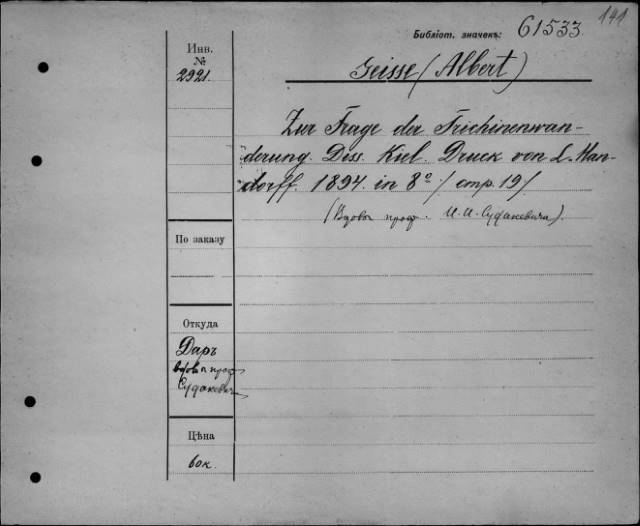 141
Библіот. значекъ: 61533.
Инв.
№
2921.
Geisse (Albert)
Zur Frage der Trichinenwan-
derung. Diss. Kiel. Druck von L. Han-
dorff. 1894. in 8º / стр. 19/
(Вдовы проф. И. И. Судакевича).
По заказу
Откуда
Даръ
вдовы проф.
Судакевича
Цѣна
60к.